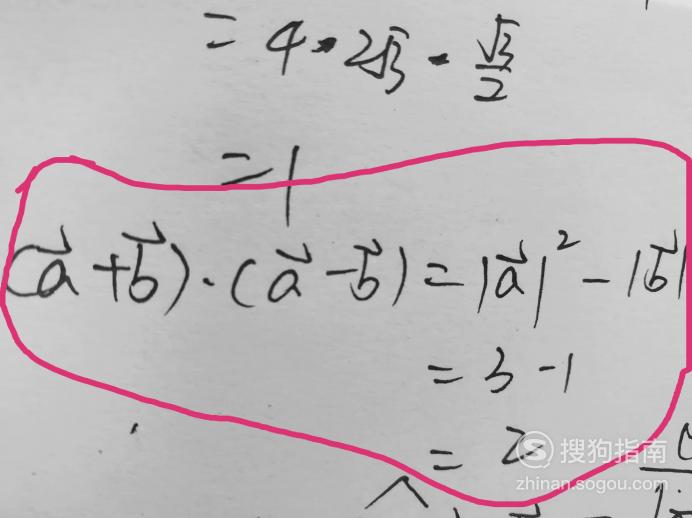 = 4 · 2√3 · √3/2
= 1
(a⃗ + b⃗) · (a⃗ - b⃗) = |a⃗|² - |b⃗|
= 3 - 1
= 2
搜狗指南
zhinan.sogou.com